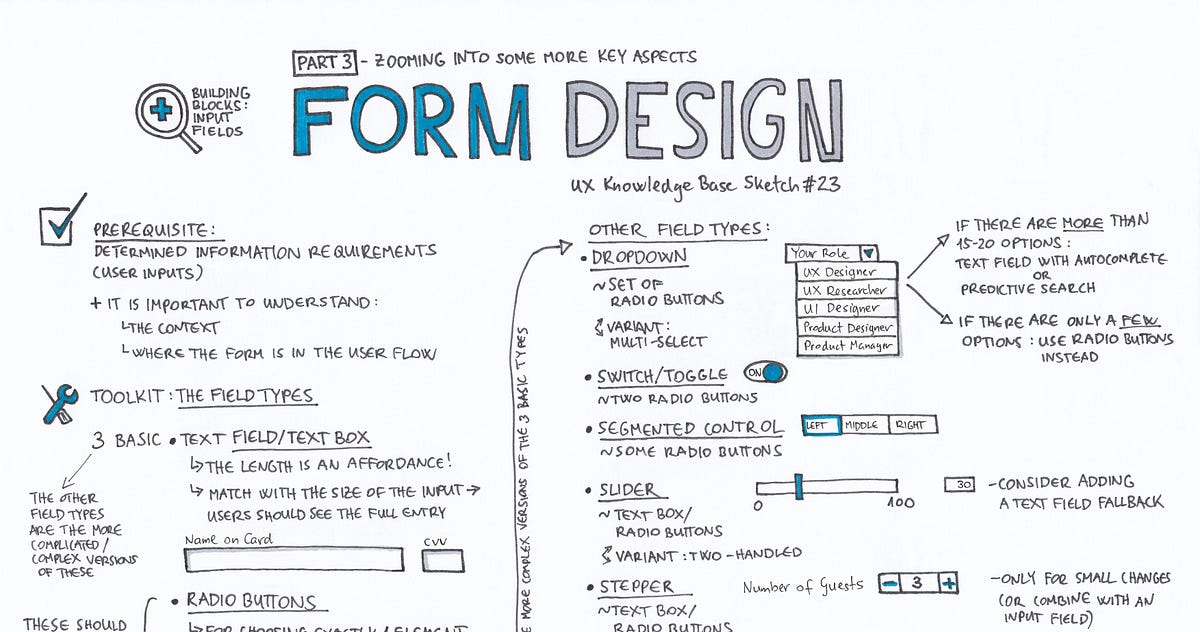 PART 3 - ZOOMING INTO SOME MORE KEY ASPECTS
BUILDING
BLOCKS:
INPUT
FIELDS
FORM DESIGN
UX Knowledge Base Sketch #23
PREREQUISITE:
DETERMINED INFORMATION REQUIREMENTS
(USER INPUTS)
+ IT IS IMPORTANT TO UNDERSTAND:
THE CONTEXT
WHERE THE FORM IS IN THE USER FLOW
TOOLKIT: THE FIELD TYPES
3 BASIC • TEXT FIELD/TEXT BOX
THE LENGTH IS AN AFFORDANCE!
MATCH WITH THE SIZE OF THE INPUT →
USERS SHOULD SEE THE FULL ENTRY
THE OTHER
FIELD TYPES
ARE THE MORE
COMPLICATED/
COMPLEX VERSIONS
OF THESE
Name on Card
CVV
• RADIO BUTTONS
THESE SHOULD
FOR CHOOSING EXACTLY 1 ELEMENT
MORE COMPLEX VERSIONS OF THE 3 BASIC TYPES
OTHER FIELD TYPES:
• DROPDOWN
~SET OF
RADIO BUTTONS
VARIANT:
MULTI-SELECT
Your Role
UX Designer
UX Researcher
UI Designer
Product Designer
Product Manager
IF THERE ARE MORE THAN
15-20 OPTIONS:
TEXT FIELD WITH AUTOCOMPLETE
OR
PREDICTIVE SEARCH
IF THERE ARE ONLY A FEW
OPTIONS: USE RADIO BUTTONS
INSTEAD
• SWITCH/TOGGLE
ON
~TWO RADIO BUTTONS
• SEGMENTED CONTROL
LEFT MIDDLE RIGHT
~SOME RADIO BUTTONS
• SLIDER
0 100
30
~TEXT BOX/
RADIO BUTTONS
VARIANT: TWO-HANDLED
-CONSIDER ADDING
A TEXT FIELD FALLBACK
• STEPPER
~TEXT BOX/
RADIO BUTTONS
Number of Guests - 3 +
-ONLY FOR SMALL CHANGES
(OR COMBINE WITH AN
INPUT FIELD)